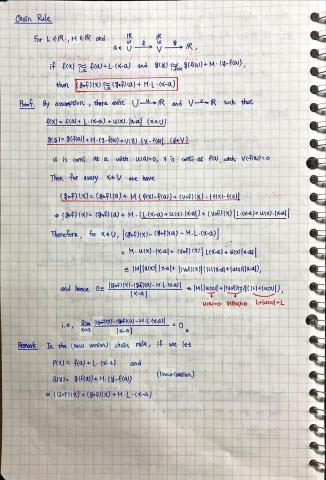 Chain Rule
For L∈ℝ, M∈ℝ and
ℝ ℝ
a ∈ U →f V →g ℝ,
if f(x) ≈ f(a) + L·(x-a) and g(y) ≈ g(f(a)) + M·(y-f(a)),
then (g∘f)(x) ≈ (g∘f)(a) + M·L·(x-a)
Proof. By assumption, there exist U →u ℝ and V →v ℝ such that
f(x) = f(a) + L·(x-a) + u(x)·|x-a| (x∈U)
g(y) = g(f(a)) + M·(y-f(a)) + v(y)·|y-f(a)| (y∈V)
u is conti. at a with u(a)=0, v is conti. at f(a) with v(f(a))=0
Then for every x∈U we have
(g∘f)(x) = (g∘f)(a) + M·(f(x)-f(a)) + (v∘f)(x)·|f(x)-f(a)|
⇒ (g∘f)(x) = (g∘f)(a) + M·(L·(x-a)+u(x)·|x-a|) + (v∘f)(x)|L·(x-a)+u(x)·|x-a||
Therefore, for x∈U, |(g∘f)(x) - (g∘f)(a) - M·L·(x-a)|
= M·u(x)·|x-a| + (v∘f)(x)|L(x-a)+u(x)|x-a||
≤ |M||u(x)||x-a| + |(v∘f)(x)|(|L||x-a|+|u(x)||x-a|),
and hence 0 ≤ |(g∘f)(x)-(g∘f)(a)-M·L·(x-a)| / |x-a| ≤ |M||u(x)| + |(v∘f)(x)|(|L|+|u(x)|),
u(a)=0 v(f(a))=0 L+|u(a)|=L
i.e., lim x→a |(g∘f)(x)-(g∘f)(a)-M·L·(x-a)| / |x-a| = 0.
Remark. In the (new version) chain rule, if we let
P(x) = f(a) + L·(x-a) and
Q(y) = g(f(a)) + M·(y-f(a))
⇒ (Q∘P)(x) = (g∘f)(x) + M·L·(x-a)